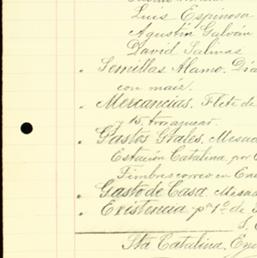 Luis Espinosa
Agustin Galván
David Salinas
Semillas Alamo. Dia
con maiz.
Mercancias. Flete de
y 15.
Gastos Grales. Mesad
Estación Catalina, por C
Timbres correo en En
Gasto de Casa. Mesad
Existencia pa 1o. de
Sta Catalina, En